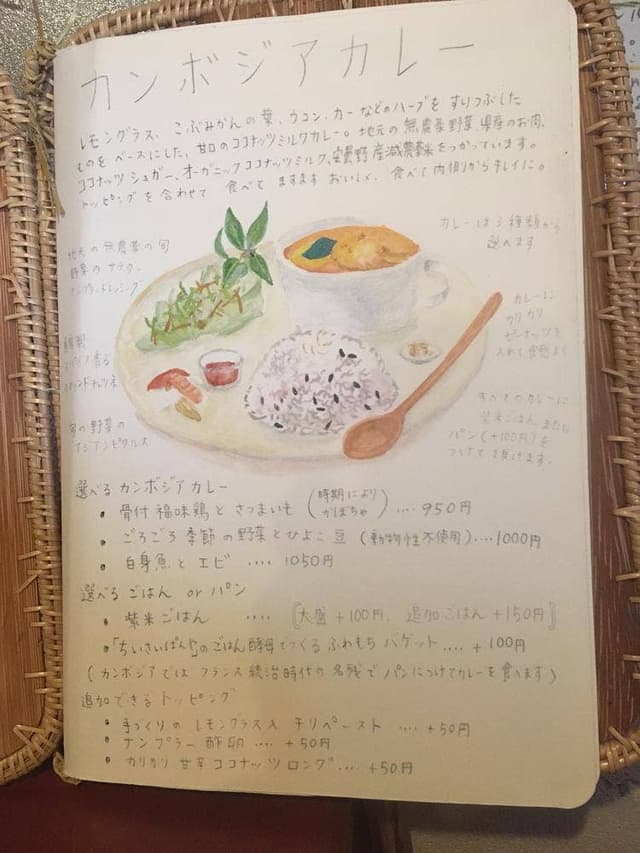 カンボジアカレー
レモングラス、こぶみかんの葉、ウコン、カーなどのハーブをすりつぶした
ものをベースにした、甘口のココナッツミルクカレー。地元の無農薬野菜、県産のお肉、
ココナッツシュガー、オーガニックココナッツミルク、安曇野産減農薬米をつかっています。
トッピングを合わせて 食べて ますます おいしく、食べて内側からキレイに。
地元の無農薬の旬
野菜のサラダ、
ナンプラードレッシング
カレーは3種類から
選べます
カレーに
カリカリ
ピーナッツを
入れて食感よく
旬の野菜の
アジアンピクルス
すべてのカレーに
紫米ごはん または
パン(+100円)を
つけて頂けます。
選べるカンボジアカレー
• 骨付福味鶏とさつまいも (時期により かぼちゃ) .... 950円
• ごろごろ季節の野菜とひよこ豆 (動物性不使用) .... 1000円
• 白身魚とエビ .... 1050円
選べるごはん or パン
• 紫米ごはん .... 〚大盛+100円、追加ごはん+150円〛
• 「ちいさいぱん」のごはん酵母でつくる ふわもち バゲット .... +100円
(カンボジアではフランス統治時代の名残でパンにつけてカレーを食べます)
追加できるトッピング
• 手づくりのレモングラス入チリペースト .... +50円
• ナンプラー酢卵 .... +50円
• カリカリ甘辛ココナッツロング .... +50円